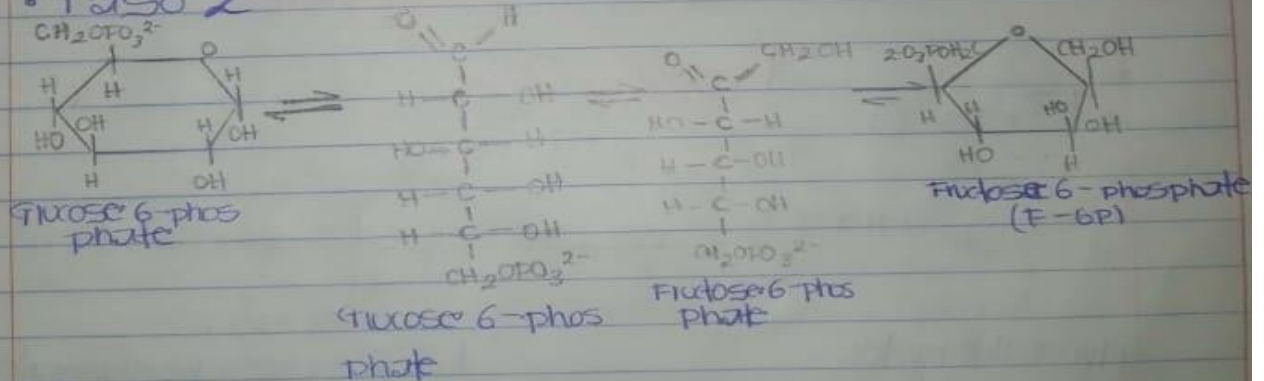 Paso 2
CH₂OPO₃²⁻
O
H
H
H
HO
OH
H
OH
H
OH
Glucose 6-phos
phate
O
H
C
H-C-OH
HO-C-H
H-C-OH
H-C-OH
CH₂OPO₃²⁻
Glucose 6-phos
phate
O
C
CH₂OH
HO-C-H
H-C-OH
H-C-OH
CH₂OPO₃²⁻
Fructose 6-phos
phate
2O₃POH₂C
O
CH₂OH
H
H
HO
OH
HO
H
Fructose 6-phosphate
(F-6P)